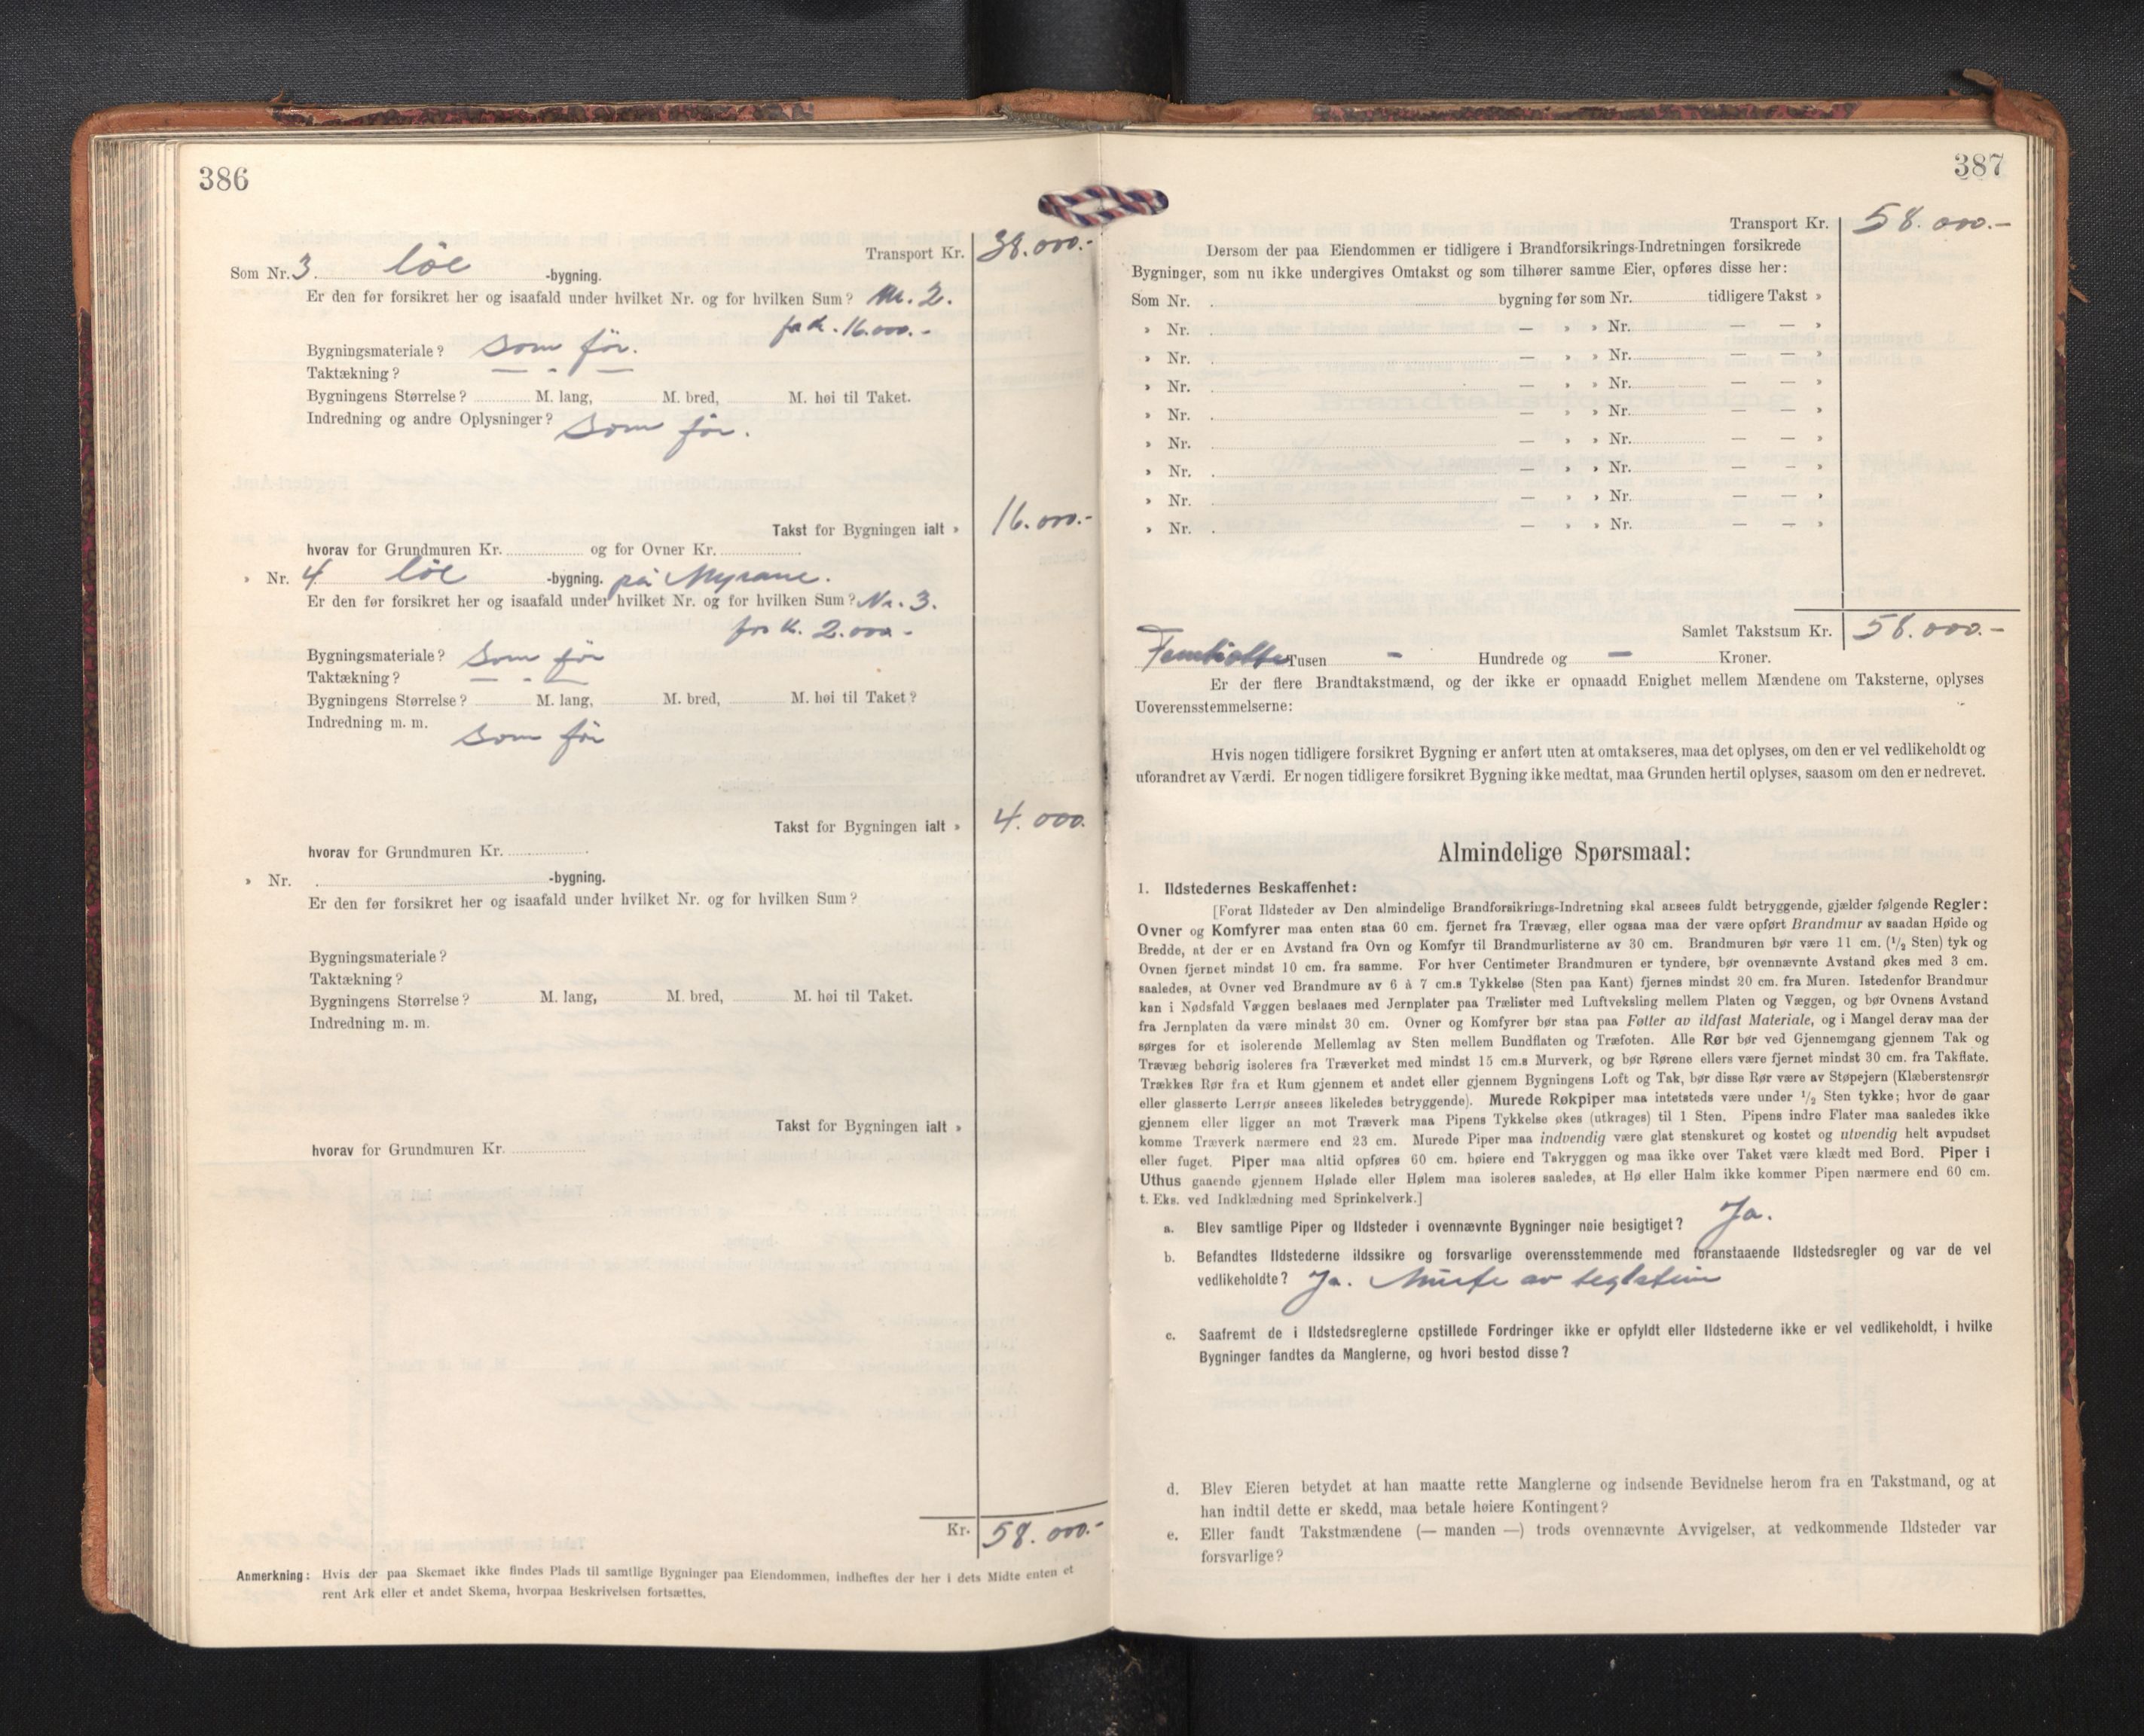 386
Transport Kr. 38.000.-
Som Nr. 3. löe -bygning.
Er den før forsikret her og isaafald under hvilket Nr. og for hvilken Sum? Nr. 2.
for k. 16.000.-
Bygningsmateriale? som før.
Taktækning? — „ —
Bygningens Størrelse? M. lang, M. bred, M. høi til Taket.
Indredning og andre Oplysninger? som før.
Takst for Bygningen ialt » 16.000.-
hvorav for Grundmuren Kr. og for Ovner Kr.
» Nr. 4 löe -bygning. på Myrane.
Er den før forsikret her og isaafald under hvilket Nr. og for hvilken Sum? Nr. 3.
for k. 2.000.-
Bygningsmateriale? som før
Taktækning? — „ —
Bygningens Størrelse? M. lang, M. bred, M. høi til Taket?
Indredning m. m.
som før
Takst for Bygningen ialt » 4.000.
hvorav for Grundmuren Kr.
» Nr. -bygning.
Er den før forsikret her og isaafald under hvilket Nr. og for hvilken Sum?
Bygningsmateriale?
Taktækning?
Bygningens Størrelse? M. lang, M. bred, M. høi til Taket.
Indredning m. m.
Takst for Bygningen ialt »
hvorav for Grundmuren Kr.
Kr. 58.000.-
Anmerkning: Hvis der paa Skemaet ikke findes Plads til samtlige Bygninger paa Eiendommen, indheftes der her i dets Midte enten et
rent Ark eller et andet Skema, hvorpaa Beskrivelsen fortsættes.
387
Transport Kr. 58.000.-
Dersom der paa Eiendommen er tidligere i Brandforsikrings-Indretningen forsikrede
Bygninger, som nu ikke undergives Omtakst og som tilhører samme Eier, opføres disse her:
Som Nr. bygning før som Nr. tidligere Takst »
» Nr. — » » Nr. — — »
» Nr. — » » Nr. — — »
» Nr. — » » Nr. — — »
» Nr. — » » Nr. — — »
» Nr. — » » Nr. — — »
» Nr. — » » Nr. — — »
» Nr. — » » Nr. — — »
» Nr. — » » Nr. — — »
Samlet Takstsum Kr. 58.000.-
Femtiotte Tusen - Hundrede og - Kroner.
Er der flere Brandtakstmænd, og der ikke er opnaadd Enighet mellem Mændene om Taksterne, oplyses
Uoverensstemmelserne:
Hvis nogen tidligere forsikret Bygning er anført uten at omtakseres, maa det oplyses, om den er vel vedlikeholdt og
uforandret av Værdi. Er nogen tidligere forsikret Bygning ikke medtat, maa Grunden hertil oplyses, saasom om den er nedrevet.
Almindelige Spørsmaal:
1. Ildstedernes Beskaffenhet:
[Forat Ildsteder av Den almindelige Brandforsikrings-Indretning skal ansees fuldt betryggende, gjælder følgende Regler:
Ovner og Komfyrer maa enten staa 60 cm. fjernet fra Trævæg, eller ogsaa maa der være opført Brandmur av saadan Høide og
Bredde, at der er en Avstand fra Ovn og Komfyr til Brandmurlisterne av 30 cm. Brandmuren bør være 11 cm. (1/2 Sten) tyk og
Ovnen fjernet mindst 10 cm. fra samme. For hver Centimeter Brandmuren er tyndere, bør ovennævnte Avstand økes med 3 cm.
saaledes, at Ovner ved Brandmure av 6 à 7 cm.s Tykkelse (Sten paa Kant) fjernes mindst 20 cm. fra Muren. Istedenfor Brandmur
kan i Nødsfald Væggen beslaaes med Jernplater paa Trælister med Luftveksling mellem Platen og Væggen, og bør Ovnens Avstand
fra Jernplaten da være mindst 30 cm. Ovner og Komfyrer bør staa paa Føtter av ildfast Materiale, og i Mangel derav maa der
sørges for et isolerende Mellemlag av Sten mellem Bundflaten og Træfoten. Alle Rør bør ved Gjennemgang gjennem Tak og
Trævæg behørig isoleres fra Træverket med mindst 15 cm.s Murverk, og bør Rørene ellers være fjernet mindst 30 cm. fra Takflate.
Trækkes Rør fra et Rum gjennem et andet eller gjennem Bygningens Loft og Tak, bør disse Rør være av Støpejern (Klæberstensrør
eller glasserte Lerrør ansees likeledes betryggende). Murede Røkpiper maa intetsteds være under 1/2 Sten tykke; hvor de gaar
gjennem eller ligger an mot Træverk maa Pipens Tykkelse økes (utkrages) til 1 Sten. Pipens indre Flater maa saaledes ikke
komme Træverk nærmere end 23 cm. Murede Piper maa indvendig være glat stenskuret og kostet og utvendig helt avpudset
eller fuget. Piper maa altid opføres 60 cm. høiere end Takryggen og maa ikke over Taket være klædt med Bord. Piper i
Uthus gaaende gjennem Hølade eller Hølem maa isoleres saaledes, at Hø eller Halm ikke kommer Pipen nærmere end 60 cm.
t. Eks. ved Indklædning med Sprinkelverk.]
a. Blev samtlige Piper og Ildsteder i ovennævnte Bygninger nøie besigtiget? Ja.
b. Befandtes Ildstederne ildssikre og forsvarlige overensstemmende med foranstaaende Ildstedsregler og var de vel
vedlikeholdte? Ja. Mürte av teglstein
c. Saafremt de i Ildstedsreglerne opstillede Fordringer ikke er opfyldt eller Ildstederne ikke er vel vedlikeholdt, i hvilke
Bygninger fandtes da Manglerne, og hvori bestod disse?
d. Blev Eieren betydet at han maatte rette Manglerne og indsende Bevidnelse herom fra en Takstmand, og at
han indtil dette er skedd, maa betale høiere Kontingent?
e. Eller fandt Takstmændene (— manden —) trods ovennævnte Avvigelser, at vedkommende Ildsteder var
forsvarlige?